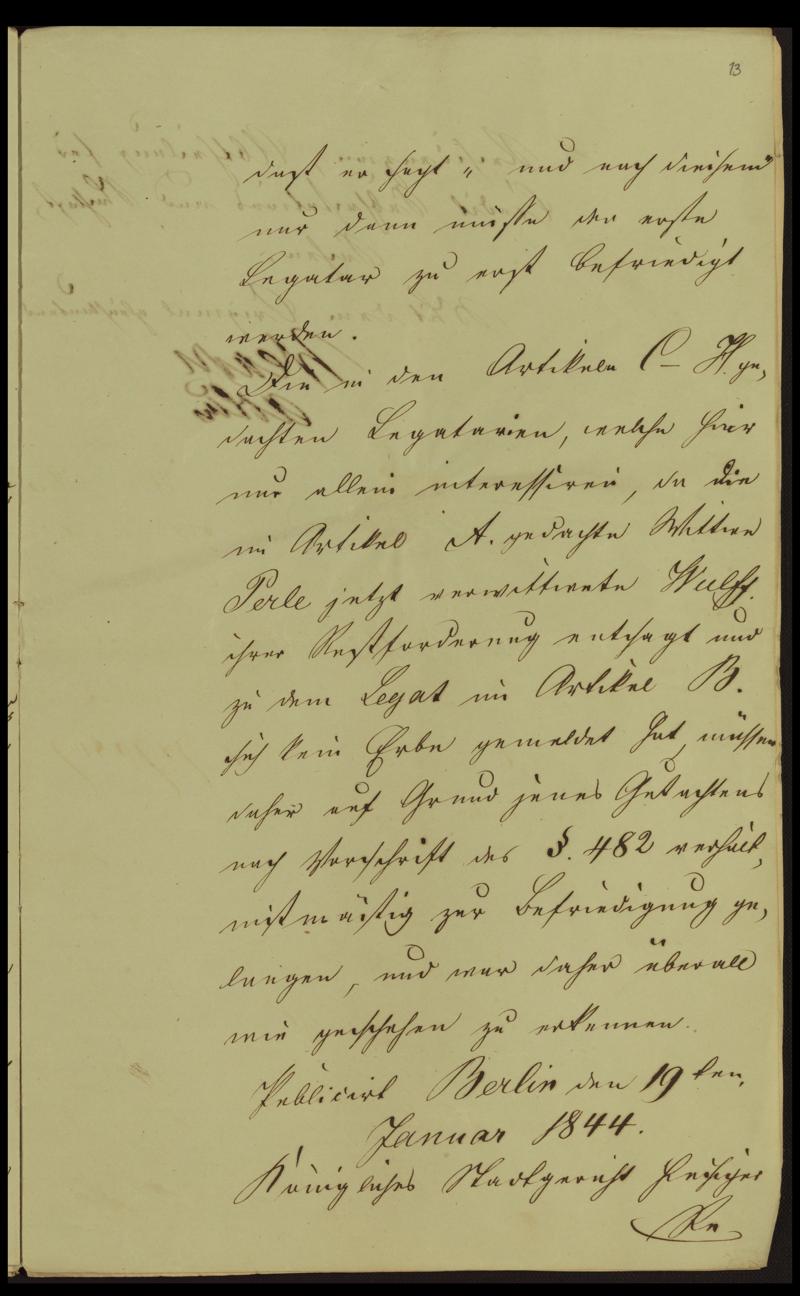 13
daß er sagt „ und nach diesem"
nur dann müsse der erste
Legatar zu erst befriedigt
werden.
Die in den Artikeln C – H. ge-
dachten Legatarien, welche hier
nur allein interessiren, da die
im Artikel A. gedachte Wittwe
Perle jetzt verwittwete Wulff.
ihrer Restforderung entsagt und
zu dem Legat im Artikel B.
sich kein Erbe gemeldet hat, müssen
daher auf Grund jenes Gutachtens
nach Vorschrift des §. 482 verhält-
nißmäßig zur Befriedigung ge-
langen, und war daher überall
wie geschehen zu erkennen.
Publicirt Berlin den 19ten
Januar 1844.
Königliches Stadtgericht hiesiger
Re